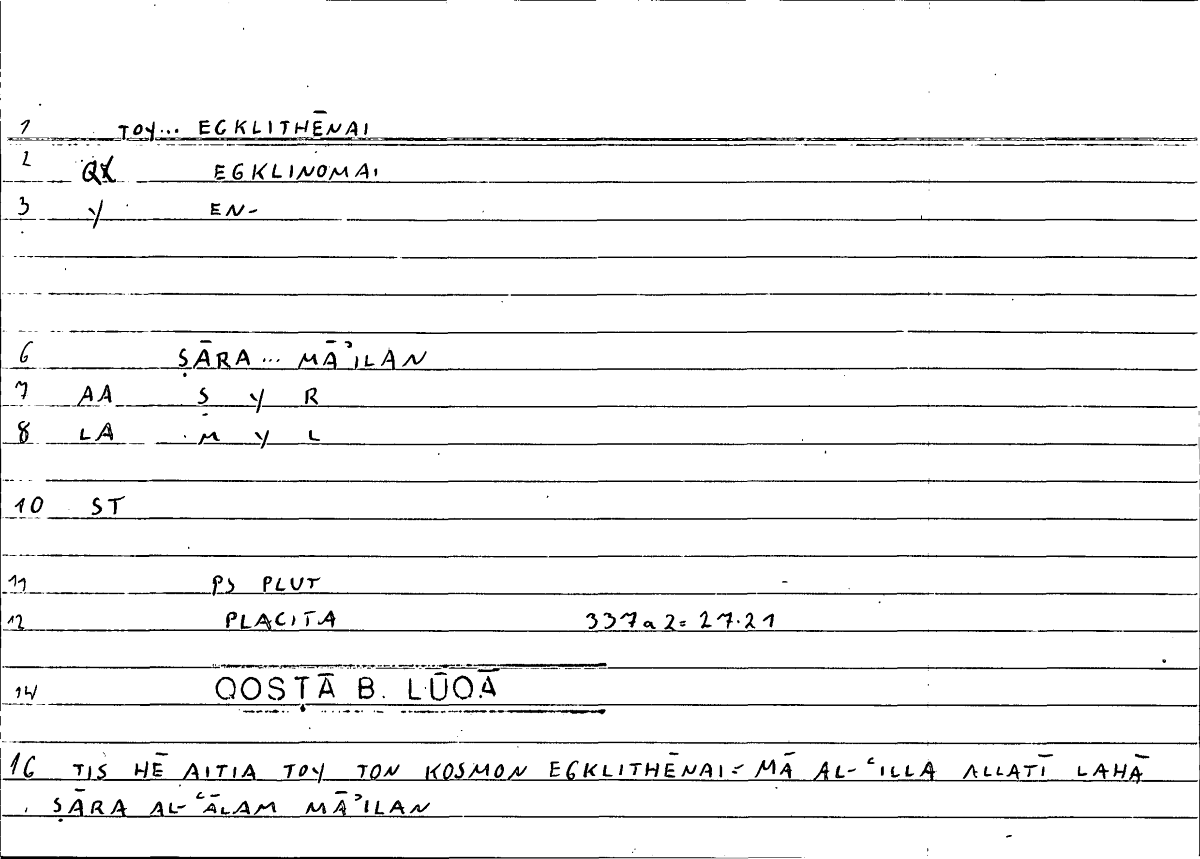 1 TOY... EGKLITHĒNAI
2 QX EGKLINOMAI
3 Y EN-
6 ṢĀRA ... MĀʾILAN
7 AA Ṣ Y R
8 LA M Y L
10 ST
11 PS PLUT
12 PLACITA 337a2= 27.21
14 QOSṬĀ B. LŪQĀ
16 TIS HĒ AITIA TOY TON KOSMON EGKLITHĒNAI = MĀ AL-ʿILLA ALLATĪ LAHĀ
ṢĀRA AL-ʿĀLAM MĀʾILAN